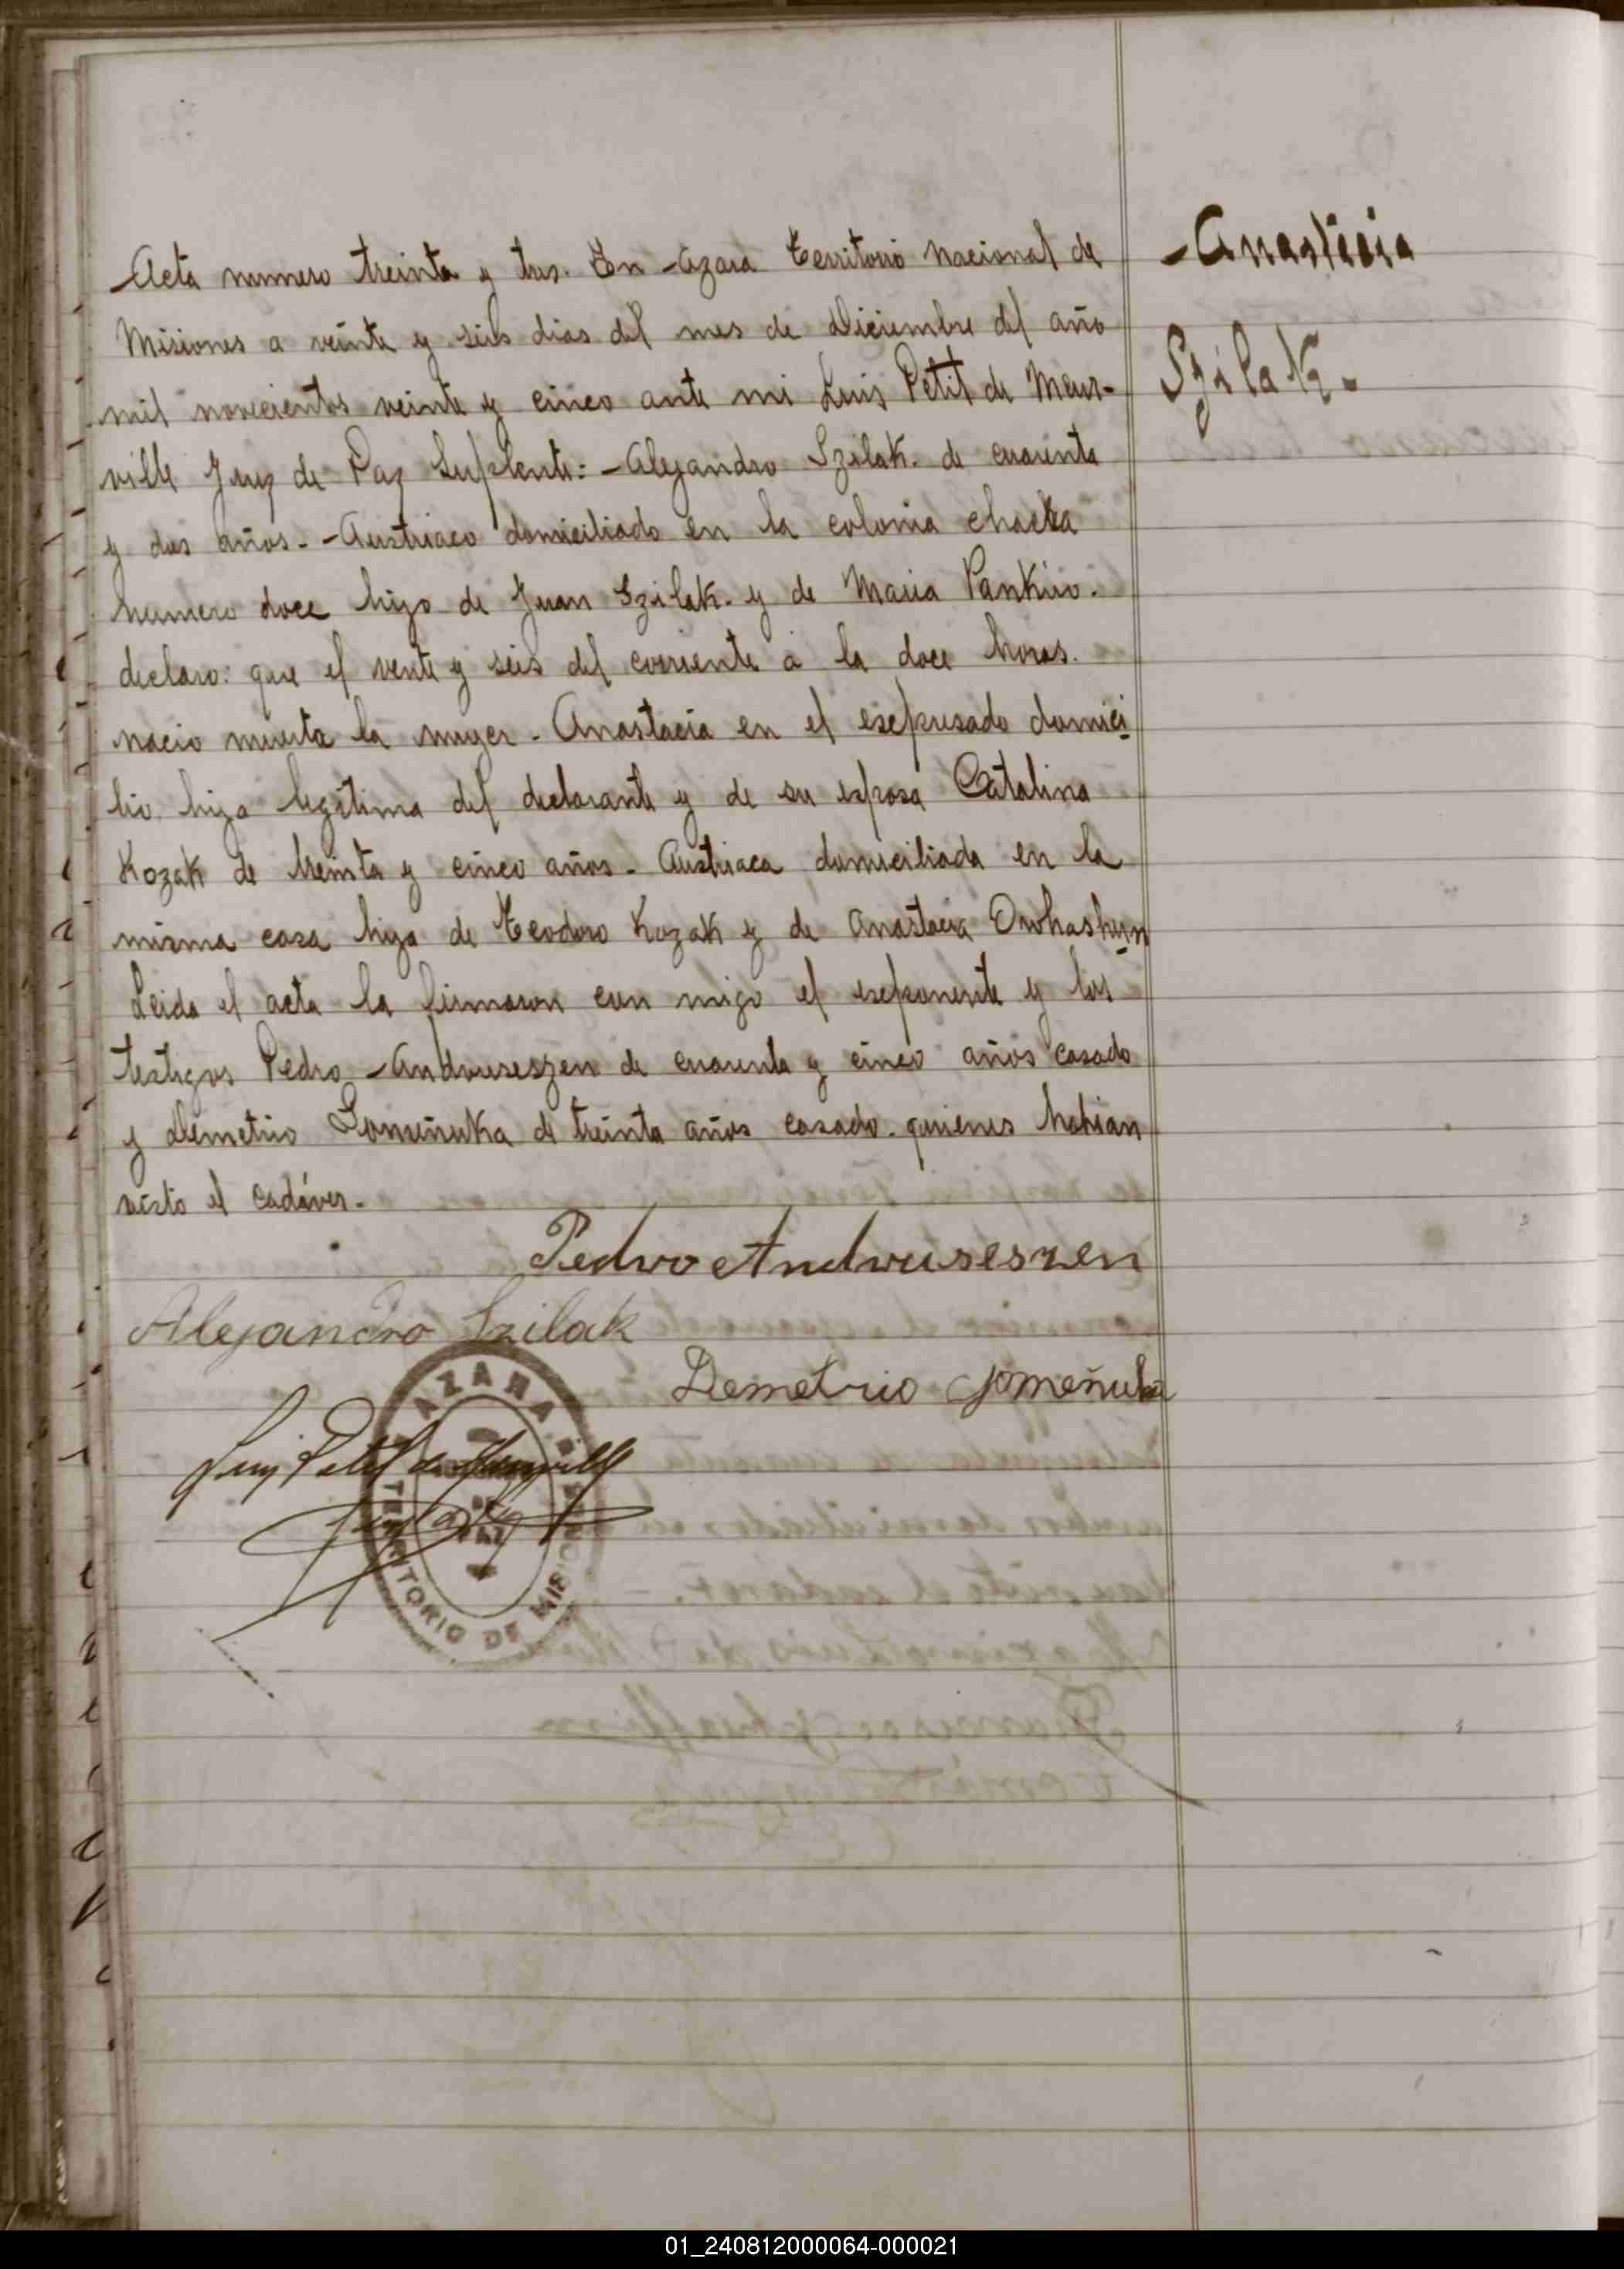 Acta numero treinta y tres. En Azara Territorio Nacional de
Misiones a veinte y seis dias del mes de Diciembre del año
mil novecientos veinte y cinco ante mi Luis Petit de Meur-
ville Juez de Paz Suplente: Alejandro Szilak. de cuarenta
y dos años. Austriaco domiciliado en la colonia chacka
numero doce hijo de Juan Szilak. y de Maria Pankiw.
declaro: que el vente y seis del corriente a la doce horas.
nacio muerta la muger. Anastacia en el escpresado domici
lio, hija legitima del declarante y de su esposa Catalina
Kozak de treinta y cinco años. Austriaca domiciliada en la
misma casa hija de Teodoro Kozak y de Anastacia
Leida el acta la firmaron con migo el escponente y los
testigos Pedro Andruseszen de cuarenta y cinco años casado
y Demetrio Gomeñuka de treinta años casado. quienes habian
visto el cadáver.
Pedro Andruseszen
Alejandro Szilak
Demetrio Gomeñuka
Luis Petit de Meurville
AZARA
JUZGADO DE PAZ
TERRITORIO DE MISIONES
Anastacia
Szilak.
01_240812000064-000021